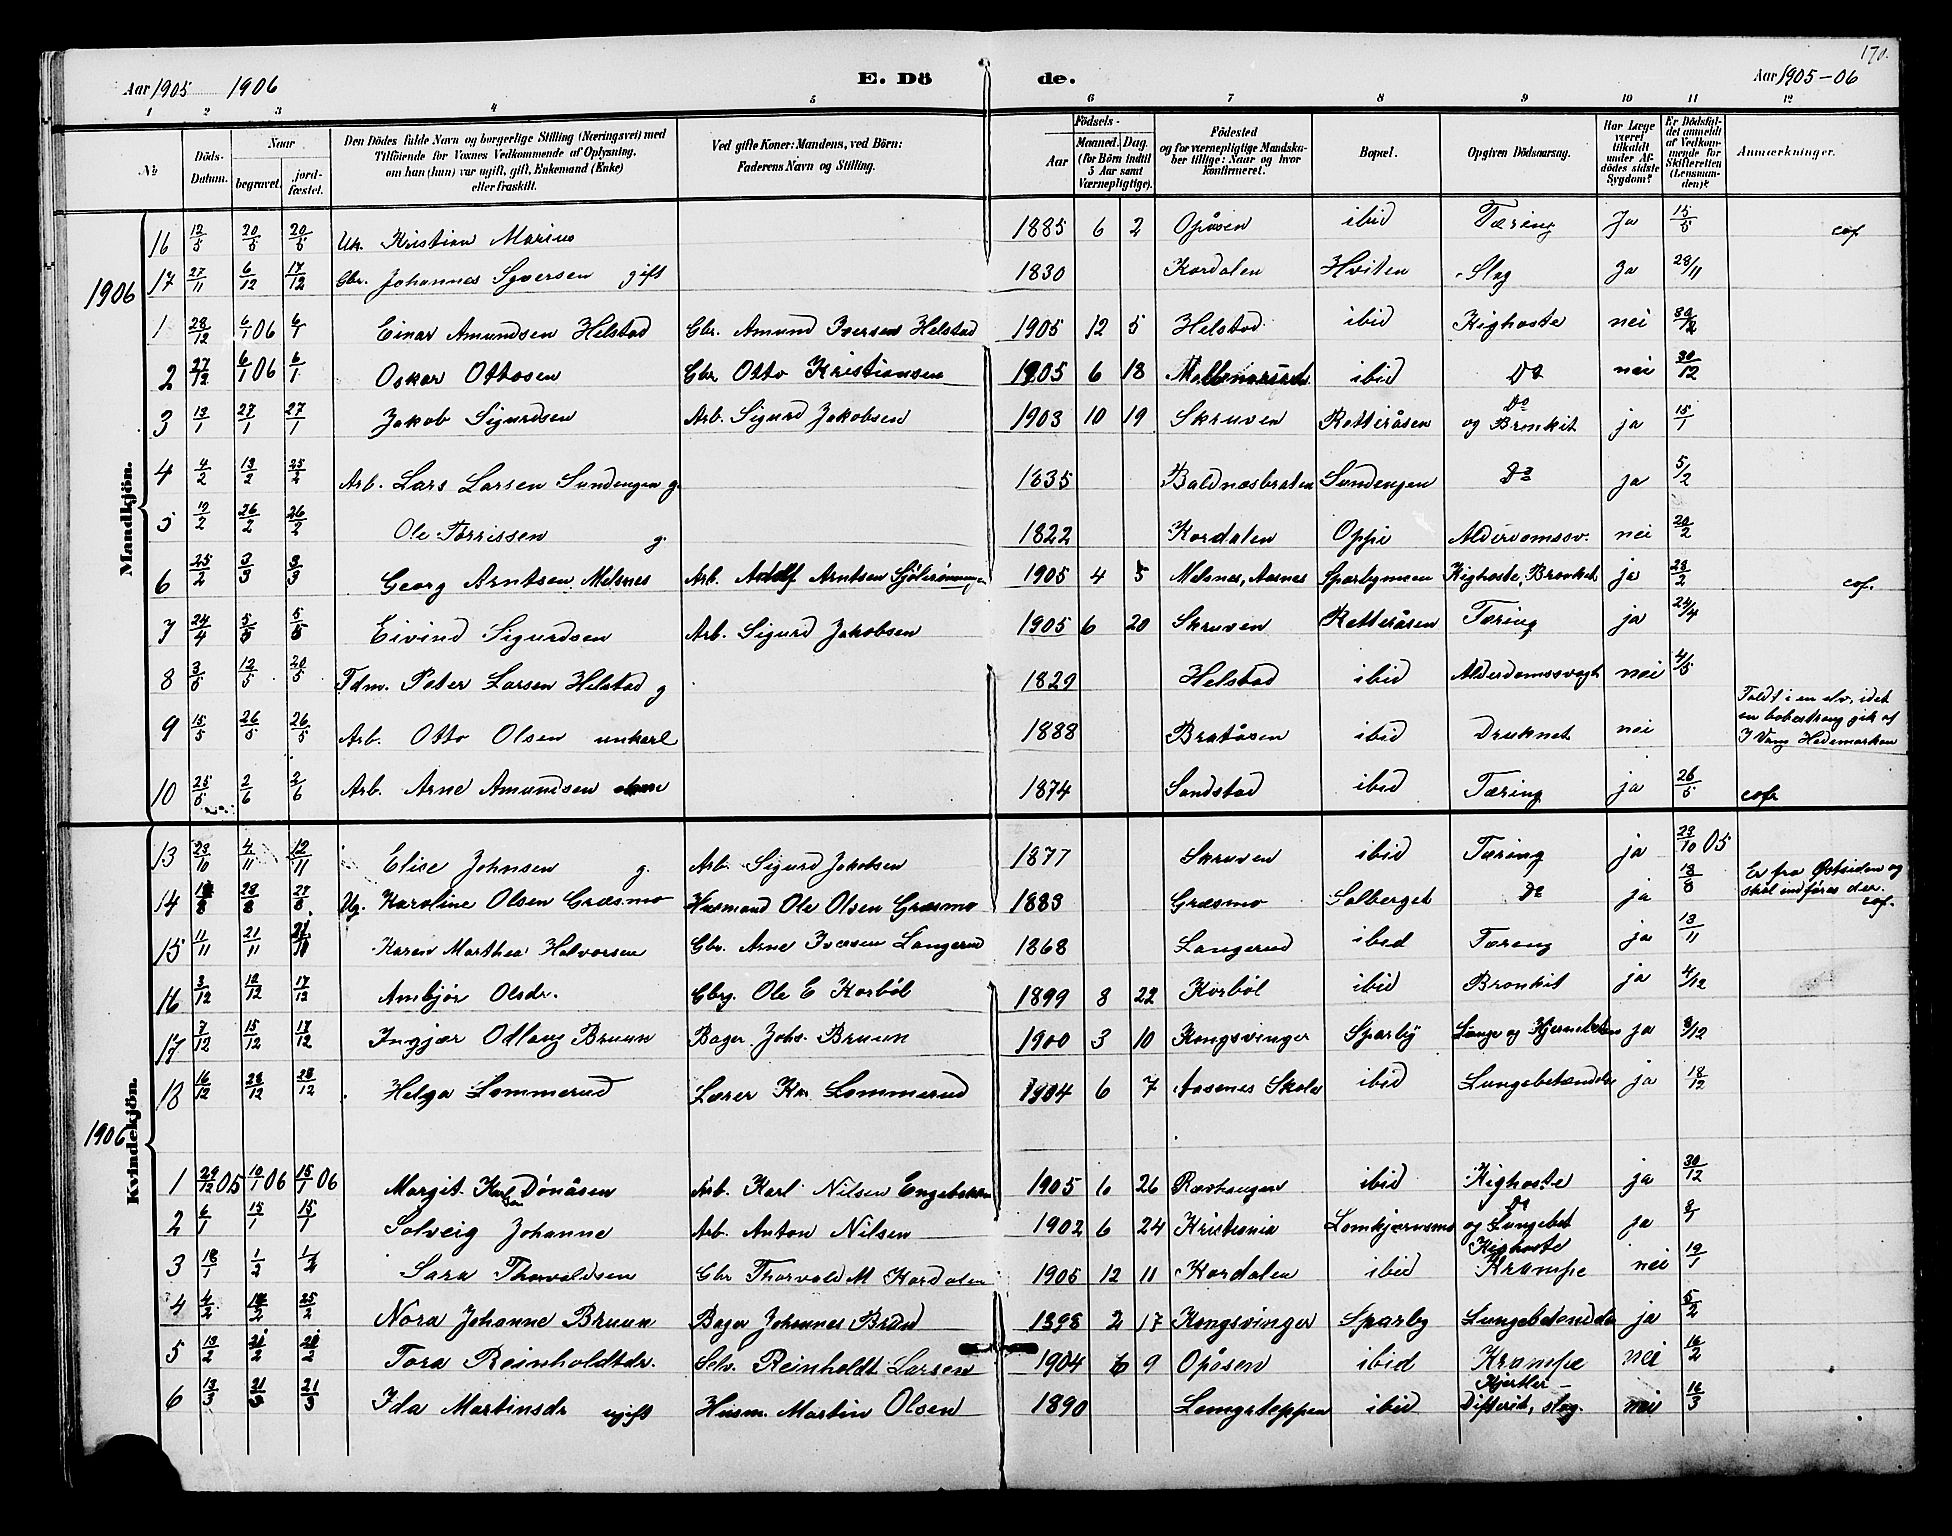 170.
Aar 1905 1906 E. Dö de. Aar 1905-06
1 2 3 4 5 6 7 8 9 10 11 12
№ Döds-Datum. Naar begravet. jordfæstet. Den Dödes fulde Navn og borgerlige Stilling (Næringsvei) med Tilföiende for Voxnes Vedkommende af Oplysning, om han (hun) var ugift, gift, Enkemand (Enke) eller fraskilt. Ved gifte Koner: Mandens, ved Börn: Faderens Navn og Stilling. Födsels- Aar Maaned. Dag. (for Börn indtil 5 Aar samt Værnepligtige). Födested og for værnepligtige Mandskaber tillige: Naar og hvor konfirmeret. Bopæl. Opgiven Dödsaarsag. Har Læge været tilkaldt under Afdödes sidste Sygdom? Er Dödsfaldet anmeldt af Vedkommende for Skifteretten (Lensmanden)? Anmærkninger.
Mandkjön.
16 12/5 20/5 20/5 Uk. Kristian Marius 1885 6 2 Opåsen ibid Tæring Ja 15/5 cof.
1906
17 27/11 6/12 17/12 Gbr. Johannes Syversen gift 1830 Kordalen Hviten Slag Ja 28/11
1 28/12 6/1 06 6/1 Einar Amundsen Helstad Gbr. Amund Iversen Helstad 1905 12 5 Helstad ibid Kighoste nei 30/12
2 27/12 6/1 06 6/1 Oskar Ottosen Gbr Otto Kristiansen 1905 6 18 ibid Do nei 30/12
3 13/1 27/1 27/1 Jakob Sigurdsen Arb. Sigurd Jakobsen 1903 10 19 Skruven Retteråsen Do og Bronkit ja 15/1
4 4/2 13/2 25/2 Arb. Lars Larsen Sundengen g. 1835 Baldnæsbraten Sundengen Do ja 5/2
5 19/2 26/2 26/2 Ole Torrissen g. 1822 Kordalen Oppi Alderdomssv. nei 20/2
6 25/2 3/3 3/3 Georg Arntsen Melsnes Arb. Adolf Arntsen 1905 4 5 Melsnes, Aasnes Sparbymoen Kighoste, Bronkit ja 28/2 cof.
7 24/4 5/5 5/5 Eivind Sigurdsen Arb. Sigurd Jakobsen 1905 6 20 Skruven Retteråsen Tæring ja 24/4
8 3/5 13/5 20/5 Fdm. Peter Larsen Helstad g 1829 Helstad ibid Alderdomssvagh nei 4/5
9 15/5 26/5 26/5 Arb. Otto Olsen unkarl 1888 Bratåsen ibid Druknet nei Faldt i en elv, idet en gik af I Vang Hedemarken
10 25/5 2/6 2/6 Arb. Arne Amundsen 1874 Sandstad ibid Tæring ja 26/5 cof.
Kvindekjön.
13 23/10 4/11 12/11 Elise Johnsen g. Arb. Sigurd Jakobsen 1877 Skruven ibid Tæring ja 23/10 05
14 28/8 28/8 Ug. Karoline Olsen Græsmo Husmand Ole Olsen Græsmo 1883 Græsmo Solberget Do ja 13/8 Er fra Østsiden og skal indföres der. cof.
15 11/11 21/11 21/11 Karen Marthea Halvorsen Gbr. Arne Iversen Langerud 1868 Langerud ibid Tæring ja 13/11
16 3/12 12/12 17/12 Ambjör Olsdr. Gbrg. Ole E Korböl 1899 8 22 Korböl ibid Bronkit ja 4/12
17 7/12 15/12 17/12 Ingjær Odlaug Bruun Bager Johs. Bruun 1900 3 10 Kongsvinger Sparby Lunge og ja 8/12
18 16/12 28/12 28/12 Helga Lommerud Lærer Kr. Lommerud 1904 6 7 Aasenes Skole ibid Lungebetændelse ja 18/12
1906
1 29/12 05 10/1 06 15/1 06 Margit Karlsen Dönåsen Arb. Karl Nilsen 1905 6 26 Ravhaugen ibid Kighoste ja 30/12
2 6/1 15/1 15/1 Solveig Johanne Arb. Anton Nilsen 1902 6 24 Kristiania Lomkjærnsmo Do og Lungebet ja 8/1
3 18/1 1/2 1/2 Sara Thorvaldsen Gbr Thorvald M. Kordalen 1905 12 11 Kordalen ibid Kighoste Krampe nei 19/1
4 4/2 25/2 Nora Johanne Bruun Bager Johannes Bruun 1898 2 17 Kongsvinger Sparby Lungebetændelse ja 5/2
5 13/2 Tora Reinholdtdr. Selv. Reinholdt Larsen 1904 6 9 Opåsen ibid Krampe nei 16/2
6 13/3 21/3 21/3 Ida Martinsdr ugift Husm. Martin Olsen 1890 Langsteppen ibid Hjerter- Difterit, slag. nei 16/3